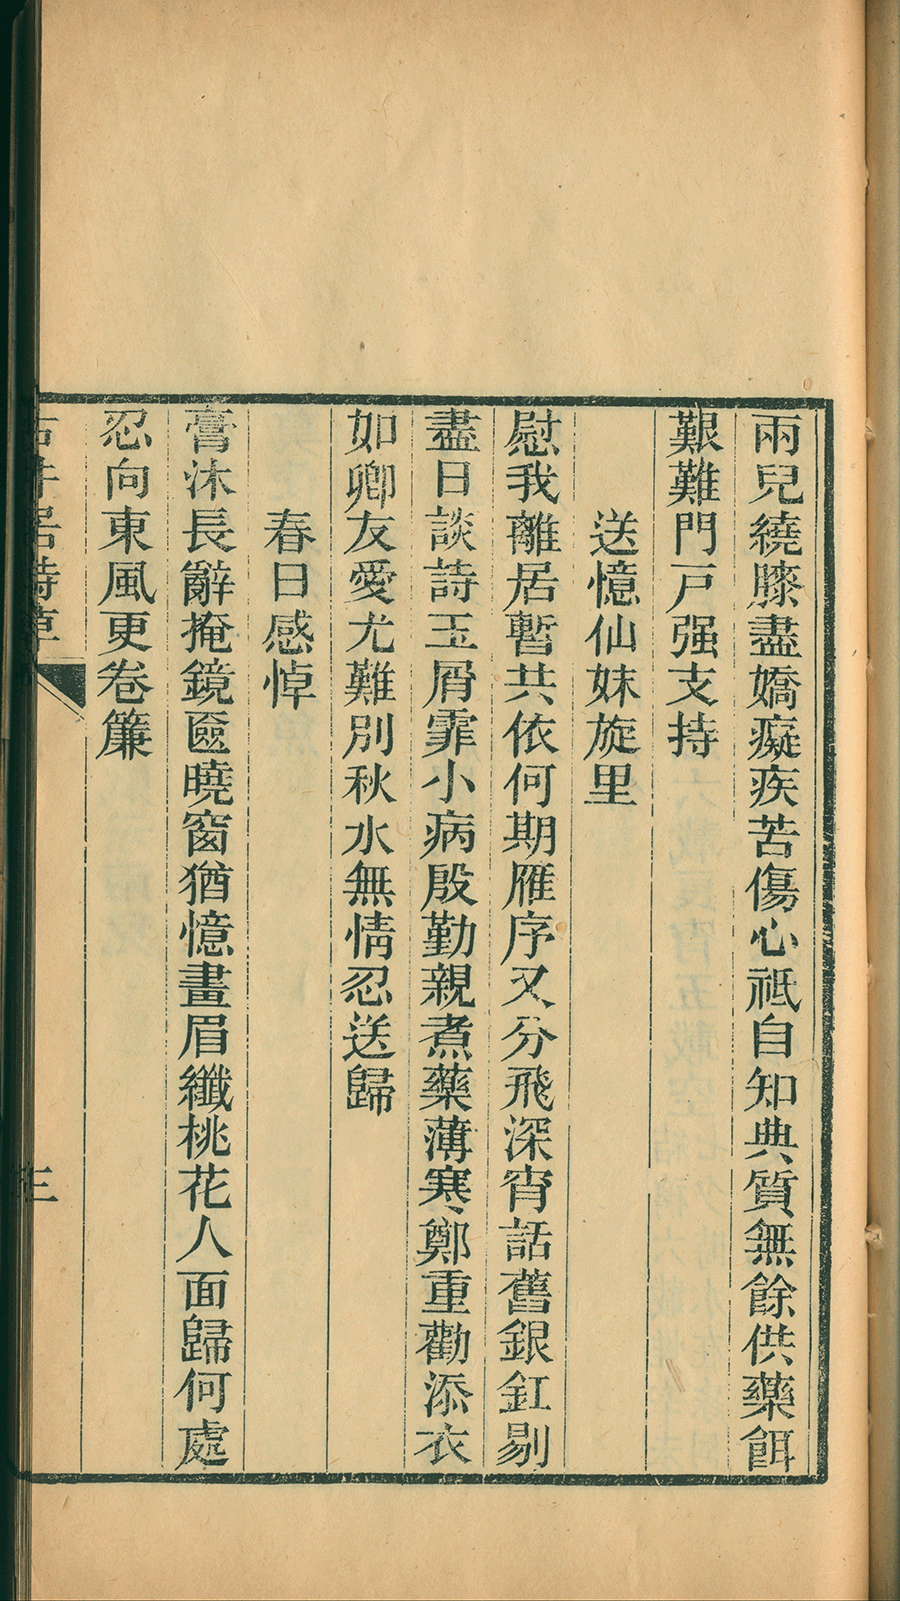 兩兒繞膝盡嬌癡疾苦傷心祗自知典質無餘供藥餌
艱難門戸强支持
送憶仙妹旋里
慰我離居暫共依何期雁序又分飛深宵話舊銀釭剔
盡日談詩玉屑霏小病殷勤親煮藥薄寒鄭重勸添衣
如卿友愛尤難別秋水無情忍送歸
春日感悼
膏沐長辭掩鏡匳曉窗猶憶畫眉纖桃花人面歸何處
忍向東風更卷簾